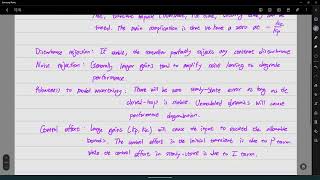 treated. The main complication is that we have a zero at - Ki/Kp.
Disturbance rejection: If stable, the controller perfectly rejects any constant disturbance
Noise rejection: Generally larger gains tend to amplify noise leading to degrade
performance.
Robustness to model uncertainty: There will be zero steady-state error as long as the
closed-loop is stable. Unmodeled dynamics will cause
performance degradation.
Control effort: Large gains (Kp, Ki) will cause the input to exceed the allowable
bounds. The control effort in the initial transient is due to P term
while the control effort in steady-state is due to I term.